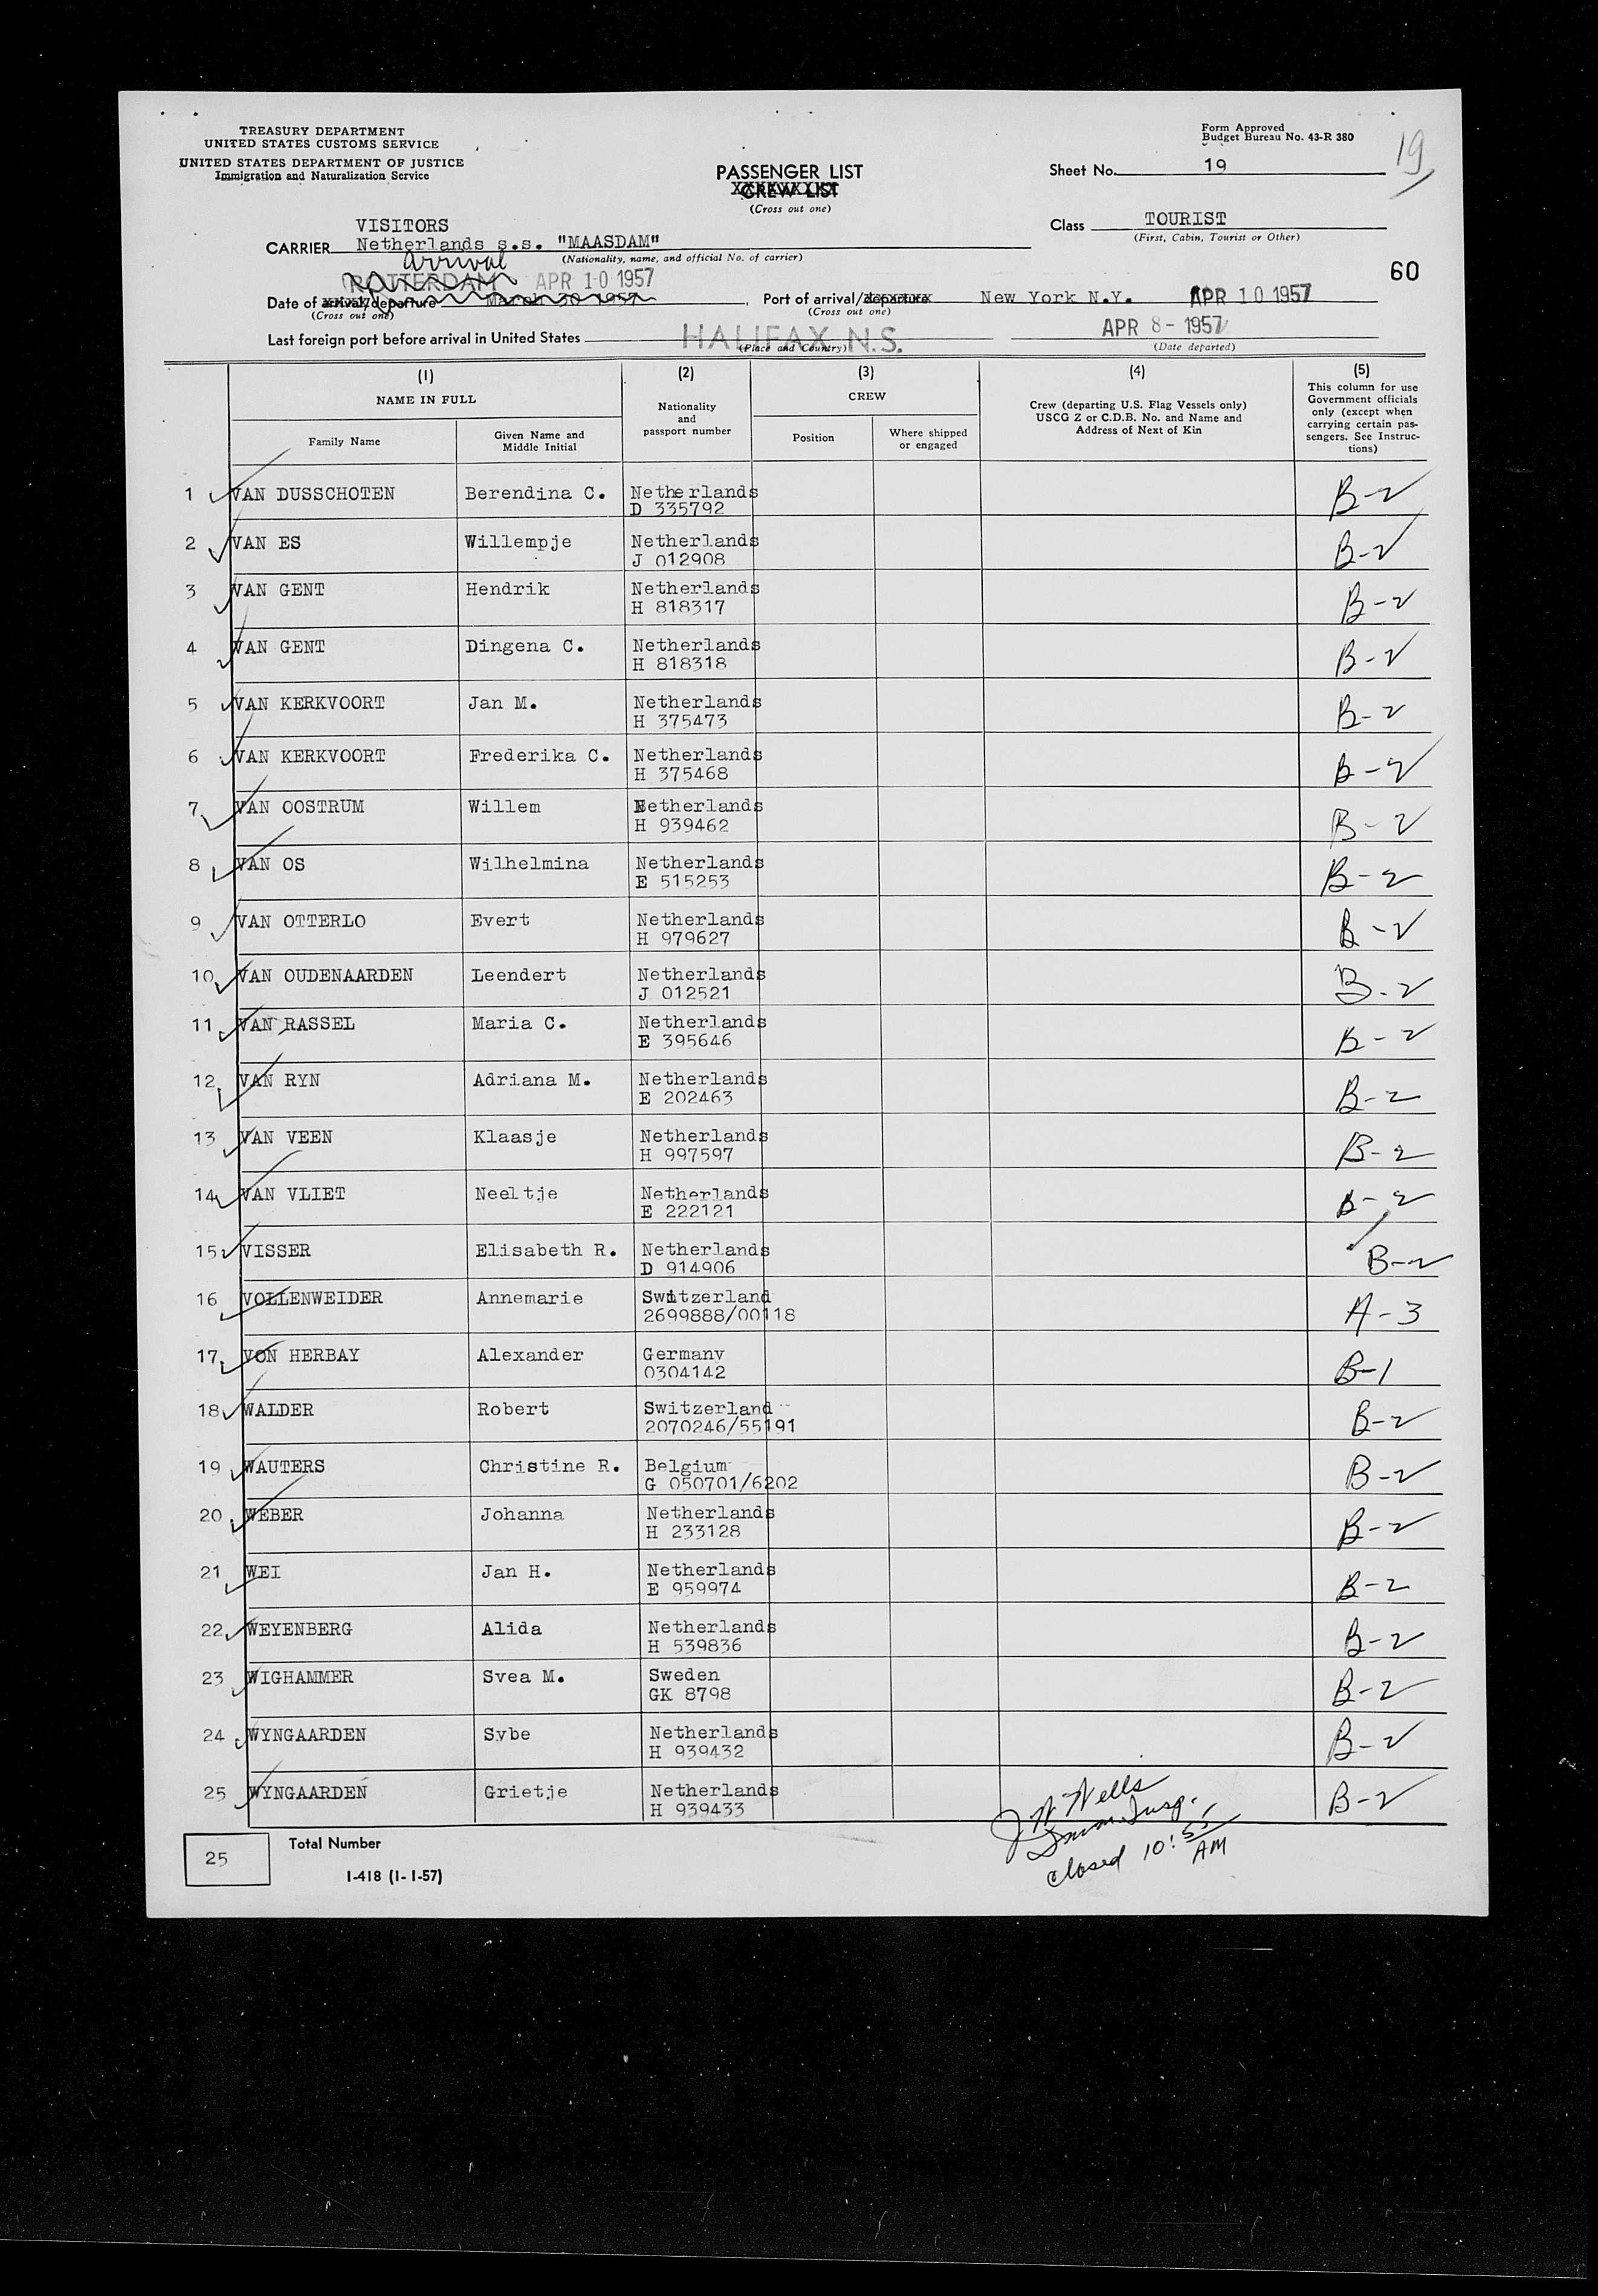 TREASURY DEPARTMENT
UNITED STATES CUSTOMS SERVICE
UNITED STATES DEPARTMENT OF JUSTICE
Immigration and Naturalization Service
Form Approved
Budget Bureau No. 43-R 380
19
PASSENGER LIST
CREW LIST
(Cross out one)
Sheet No. 19
Class TOURIST
(First, Cabin, Tourist or Other)
VISITORS
CARRIER Netherlands s.s. "MAASDAM"
(Nationality, name, and official No. of carrier)
arrival
ROTTERDAM APR 10 1957
60
Date of arrival/departure March 30 1957
(Cross out one)
Port of arrival/departure New York N.Y. APR 10 1957
(Cross out one)
Last foreign port before arrival in United States HALIFAX N.S. APR 8- 1957
(Place and Country) (Date departed)
(1) (2) (3) (4) (5)
NAME IN FULL
Family Name
Given Name and Middle Initial
Nationality and passport number
CREW
Position
Where shipped or engaged
Crew (departing U.S. Flag Vessels only)
USCG Z or C.D.B. No. and Name and
Address of Next of Kin
This column for use
Government officials
only (except when
carrying certain pas-
sengers. See Instruc-
tions)
1 VAN DUSSCHOTEN Berendina C. Netherlands B-2
D 335792
2 VAN ES Willempje Netherlands B-2
J 012908
3 VAN GENT Hendrik Netherlands B-2
H 818317
4 VAN GENT Dingena C. Netherlands B-2
H 818318
5 VAN KERKVOORT Jan M. Netherlands B-2
H 375473
6 VAN KERKVOORT Frederika C. Netherlands B-2
H 375468
7 VAN OOSTRUM Willem Netherlands B-2
H 939462
8 VAN OS Wilhelmina Netherlands B-2
E 515253
9 VAN OTTERLO Evert Netherlands B-2
H 979627
10 VAN OUDENAARDEN Leendert Netherlands B-2
J 012521
11 VAN RASSEL Maria C. Netherlands B-2
E 395646
12 VAN RYN Adriana M. Netherlands B-2
E 202463
13 VAN VEEN Klaasje Netherlands B-2
H 997597
14 VAN VLIET Neeltje Netherlands B-2
E 222121
15 VISSER Elisabeth R. Netherlands B-2
D 914906
16 VOLLENWEIDER Annemarie Switzerland A-3
2699888/00118
17 VON HERBAY Alexander Germany B-1
0304142
18 WALDER Robert Switzerland B-2
2070246/55191
19 WAUTERS Christine R. Belgium B-2
G 050701/6202
20 WEBER Johanna Netherlands B-2
H 233128
21 WEI Jan H. Netherlands B-2
E 959974
22 WEYENBERG Alida Netherlands B-2
H 539836
23 WIGHAMMER Svea M. Sweden B-2
GK 8798
24 WYNGAARDEN Sybe Netherlands B-2
H 939432
25 WYNGAARDEN Grietje Netherlands B-2
H 939433
J W Wells
Imm. Insp.
closed 10:55 AM
25 Total Number
I-418 (1-1-57)